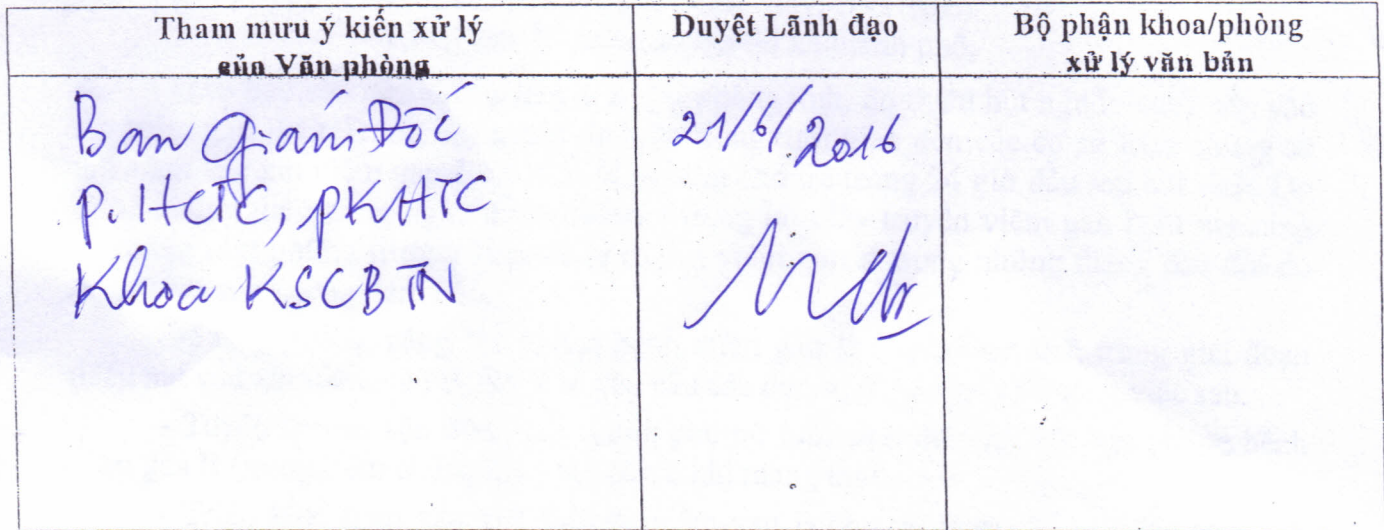 Tham mưu ý kiến xử lý
của Văn phòng
Duyệt Lãnh đạo
Bộ phận khoa/phòng
xử lý văn bản
Ban Giám Đốc
P. HCTC, PKHTC
Khoa KSCBTN
21/6/2016